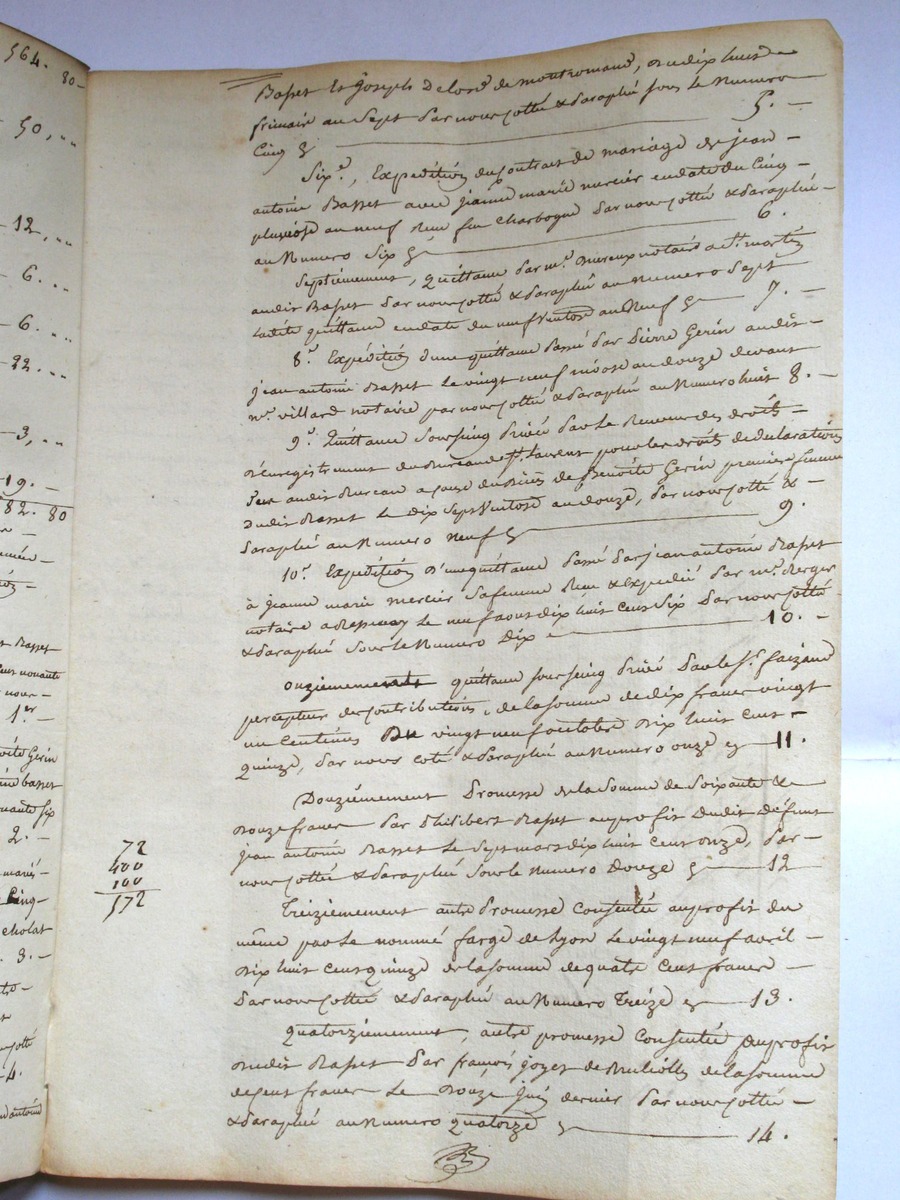 564. 80
50, ..
12, ..
6. ..
6. ..
22. ..
3, ..
19. -
82. 80
1.er
2. -
cholat
3. -
4.
Basset Et Joseph Delorme de montromand, du dix huit
frimaire an Sept Par nous cotté & Paraphé sous le Numero
Cinq 5. -
Six.t, Expedition du contrat de mariage de jean -
antoine Basset avec jeanne marie mercier en date du Cinq
pluviose an neuf Reçu feu Charbogne Par nous cotté & Paraphé -
au Numero Six 6.
Septiémement, quittance Par m.e notaire a S.t martin
audit Basset Par nous cotté & Paraphé au numero Sept
Ladite quittance en date du neuf Ventose an Neuf 7. -
8.t Expédition d'une quittance Passé Par Pierre Gerin audit -
jean antoine Basset Le vingt neuf nivose an douze devant
m.e villard notaire par nous cotté & Paraphé au Numero huit 8. -
9.t Quittance Sous seing Privé Par le Receveur des droits -
D'enregistrement du Bureau de S.t Laurent pour les droits de declaration
audit Bureau a cause du décès de Benoite Gerin premiere femme
dudit Basset Le dix Sept Ventose an douze, Par nous cotté & -
Paraphé au Numero neuf 9.
10.t Expédition d'une quittance Passé Par jean antoine Basset
à jeanne marie mercier Sa femme Reçu & expedié Par m.e Berger
notaire a Bessenay Le neuf aout dix huit cent Six Par nous cotté
& Paraphé Sous le Numero Dix 10. -
onziemement quittance Sous seing Privé Par le S.r faizand
percepteur des contributions, de la somme de dix francs vingt
un Centimes Du vingt neuf octobre Dix huit cent -
quinze, Par nous coté & Paraphé au Numero onze 11. -
Douziémement Promesse de la Somme de Soixante &
Douze francs Par Philibert Basset au profit Dudit défunt
jean antoine Basset Le Sept mars dix huit cent onze, Par -
nous cotté & Paraphé Sous le Numero Douze 12
72
400
100
572
Treiziemement autre Promesse Consentie au profit du
même par le nommé farge de Lyon Le vingt neuf avril -
Dix huit cent quinze de la somme de quatre Cent francs -
Par nous cotté & Paraphé au Numero Treize 13.
Quatorziémement, autre promesse Consentie au profit
dudit Basset Par françois de la somme
de Cent francs Le Douze juin dernier Par nous cotté -
& Paraphé au Numero quatorze 14.